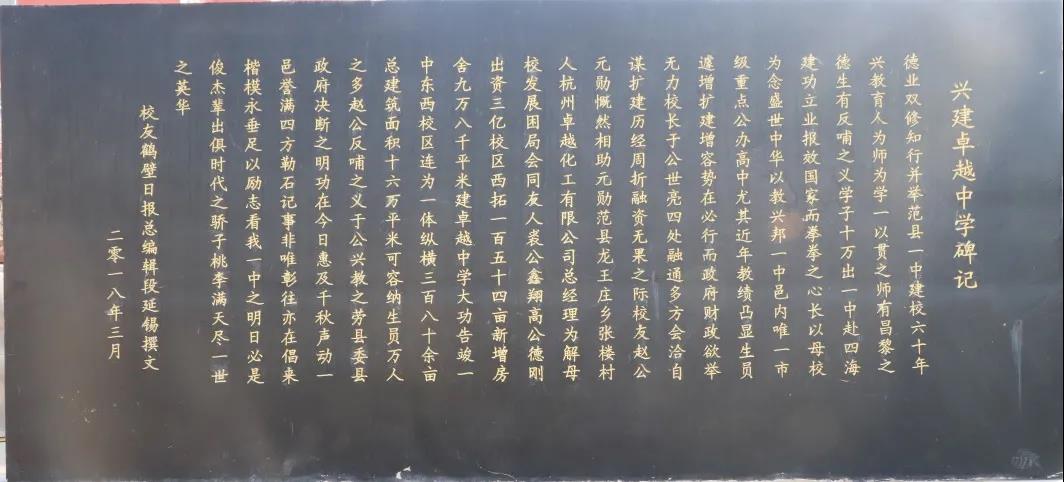 兴建卓越中学碑记
德业双修知行并举范县一中建校六十年
兴教育人为师为学一以贯之师有昌黎之
德生有反哺之义学子十万出一中赴四海
建功立业报效国家而拳拳之心长以母校
为念盛世中华以教兴邦一中邑内唯一市
级重点公办高中尤其近年教绩凸显生员
遽增扩建增容势在必行而政府财政欲举
无力校长于公世亮四处融通多方会洽自
谋扩建历经周折融资无果之际校友赵公
元勋慨然相助元勋范县龙王庄乡张楼村
人杭州卓越化工有限公司总经理为解母
校发展困局会同友人裘公鑫翔高公德刚
出资三亿校区西拓一百五十四亩新增房
舍九万八千平米建卓越中学大功告竣一
中东西校区连为一体纵横三百八十余亩
总建筑面积十六万平米可容纳生员万人
之多赵公反哺之义于公兴教之劳县委县
政府决断之明功在今日惠及千秋声动一
邑誉满四方勒石记事非唯彰往亦在倡来
楷模永垂足以励志看我一中之明日必是
俊杰辈出俱时代之骄子桃李满天尽一世
之英华
校友鹤壁日报总编辑段延锡撰文
二零一八年三月